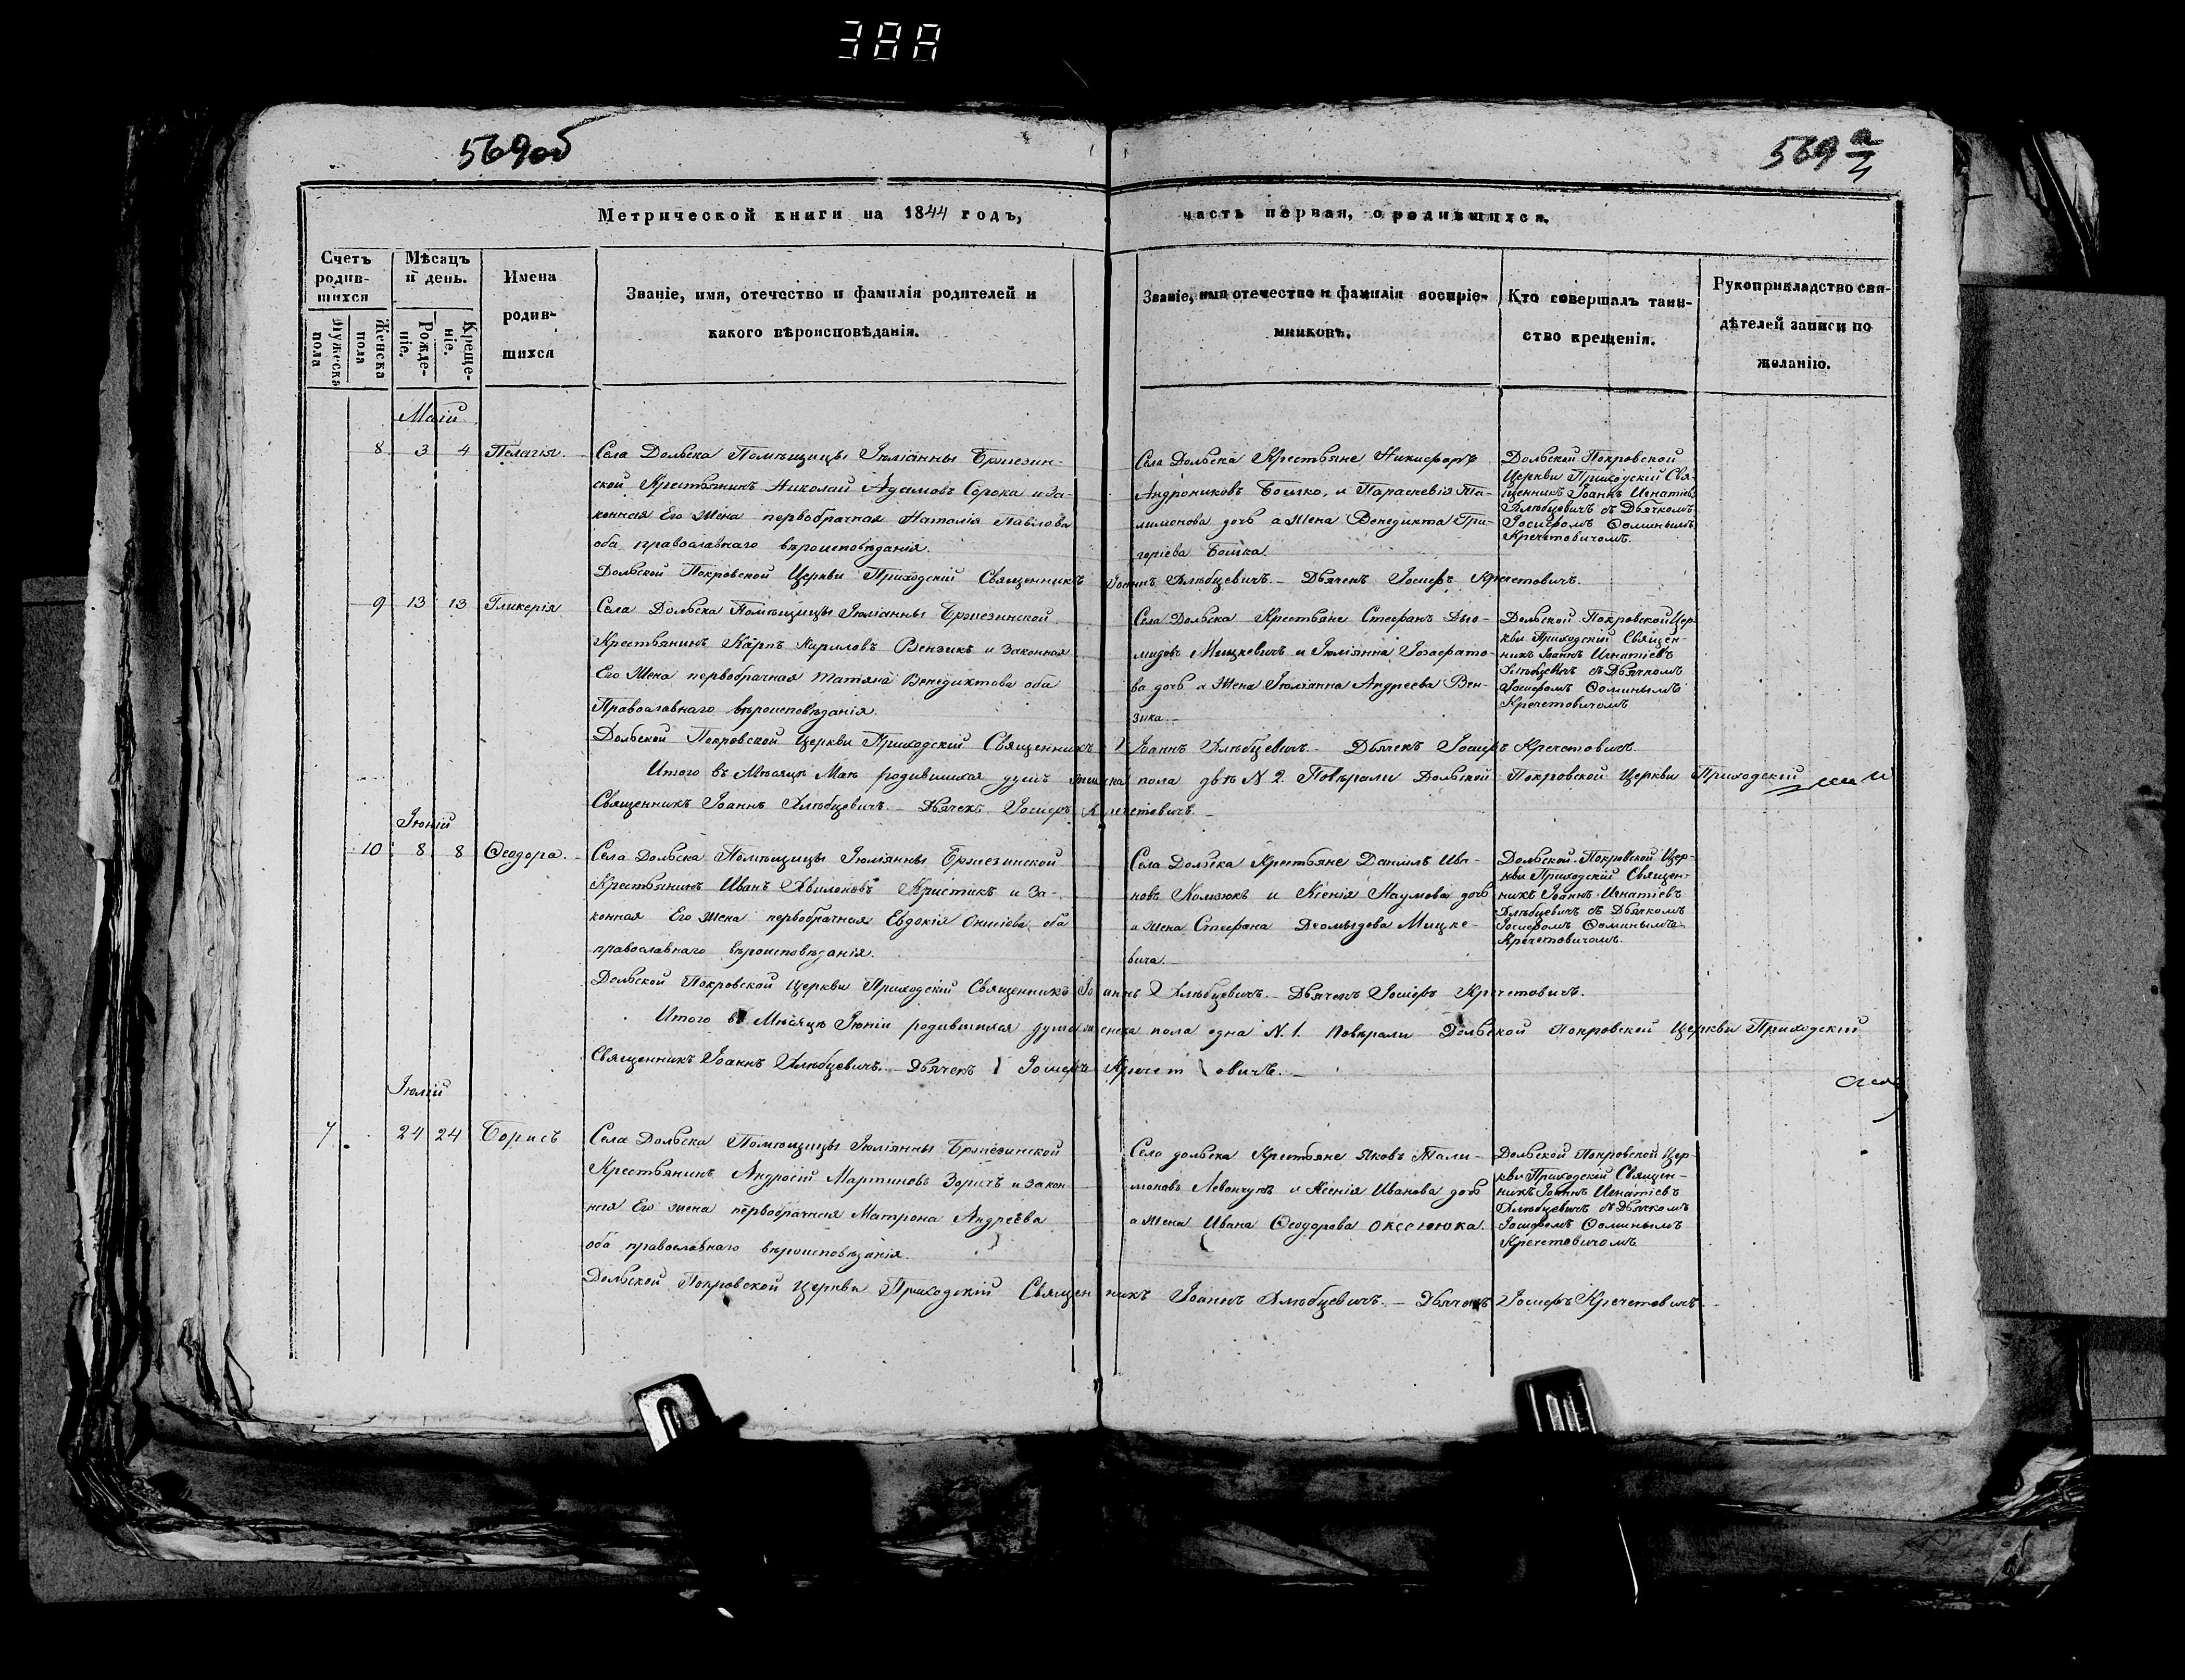 388
569об
569 а/4
Метрической книги на 1844 годъ,
часть первая, о родившихся.
Счетъ родив-шихся
Мужеска пола
Женска пола
Мѣсяцъ и день.
Рожде-ніе.
Креще-ніе.
Имена родив-шихся
Званіе, имя, отечество и фамилія родителей и
какого вѣроисповѣданія.
Званіе, имя отечество и фамилія воспріе-
мниковъ.
Кто совершалъ таин-
ство крещенія.
Рукоприкладство сви-
дѣтелей записи по
желанію.
Маій
8 3 4 Пелагія.
Села Дольска Помѣщицы Іюліанны Бржезин-
ской Крестьянинъ Николай Адамовъ Сорока и за-
конная Его Жена первобрачная Наталія Павлова
оба православнаго вѣроисповѣданія.
Села Дольска Крестьяне Никифоръ
Андрониковъ Бошко, и Параскевія Та-
лимонова дочь а Жена Венедикта Гри-
горіева Бошка.
Дольской Покровской
Церкви Приходскій Свя-
щенникъ Іоаннъ Игнатіевъ
Хлѣбцевичъ съ Дьячкомъ
Іосифомъ Ѳоминымъ
Кречетовичомъ.
Дольской Покровской Церкви Приходскій Священникъ Іоаннъ Хлѣбцевичъ. – Дьячекъ Іосифъ Кречетовичъ.
9 13 13 Гликерія
Села Дольска Помѣщицы Іюліанны Бржезинской
Крестьянинъ Карпъ Кириловъ Вензикъ и законная
Его Жена первобрачная Татіяна Венедиктова оба
Православнаго вѣроисповѣданія.
Села Дольска Крестьяне Стефанъ Дио-
мидовъ Мицкевичъ и Іюліянна Іозафато-
ва дочь а Жена Іюліянна Андреева Вен-
зика. –
Дольской Покровской Цер-
кви Приходскій Священ-
никъ Іоаннъ Игнатіевъ
Хлѣбцевичъ съ Дьячкомъ
Іосифомъ Ѳоминымъ
Кречетовичомъ
Дольской Покровской Церкви Приходскій Священникъ Іоаннъ Хлѣбцевичъ. – Дьячекъ Іосифъ Кречетовичъ.
Итого въ Мѣсяцѣ Маѣ родившихся душъ женска пола двѣ N 2. Повѣрали Дольской Покровской Церкви Приходскій
Священникъ Іоаннъ Хлѣбцевичъ. – Дьячекъ Іосифъ Кречетовичъ. –
Іюній
10 8 8 Ѳеодора.
Села Дольска Помѣщицы Іюліянны Бржезинской
Крестьянинъ Иванъ Хвилоновъ Христикъ и за-
конная Его жена первобрачная Евдокія Онисіова оба
православнаго вѣроисповѣданія.
Села Дольска Крестьяне Данилъ Ива-
новъ Колзюкъ и Ксенія Наумова дочь
а жена Стефана Деомыдова Мицке-
вича. –
Дольской Покровской Цер-
кви Приходскій Священ-
никъ Іоаннъ Игнатіевъ
Хлѣбцевичъ съ Дьячкомъ
Іосифомъ Ѳоминымъ
Кречетовичомъ.
Дольской Покровской Церкви Приходскій Священникъ Іоаннъ Хлѣбцевичъ. – Дьячекъ Іосифъ Кречетовичъ.
Итого въ Мѣсяцѣ Іюніи родившихся душа женска пола одна N. 1. Повѣрали Дольской Покровской Церкви Приходскій
Священникъ Іоаннъ Хлѣбцевичъ. – Дьячекъ Іосифъ Кречетовичъ. –
Іюлій
7 24 24 Борисъ
Села Дольска Помѣщицы Іюліянны Бржезинской
Крестьянинъ Андрей Мартиновъ Зоричъ и закон-
ная Его жена первобрачная Матрона Андреева
оба православнаго вѣроисповѣданія
Села дольска Крестьяне Яковъ Тали-
моновъ Левончукъ и Ксенія Иванова дочь
а жена Ивана Ѳеодорова Оксенюка.
Дольской Покровской Цер-
кви Приходскій Священ-
никъ Іоаннъ Игнатіевъ
Хлѣбцевичъ съ Дьячкомъ
Іосифомъ Ѳоминымъ
Кречетовичомъ
Дольской Покровской Церкви Приходскій Священникъ Іоаннъ Хлѣбцевичъ. – Дьячекъ Іосифъ Кречетовичъ –